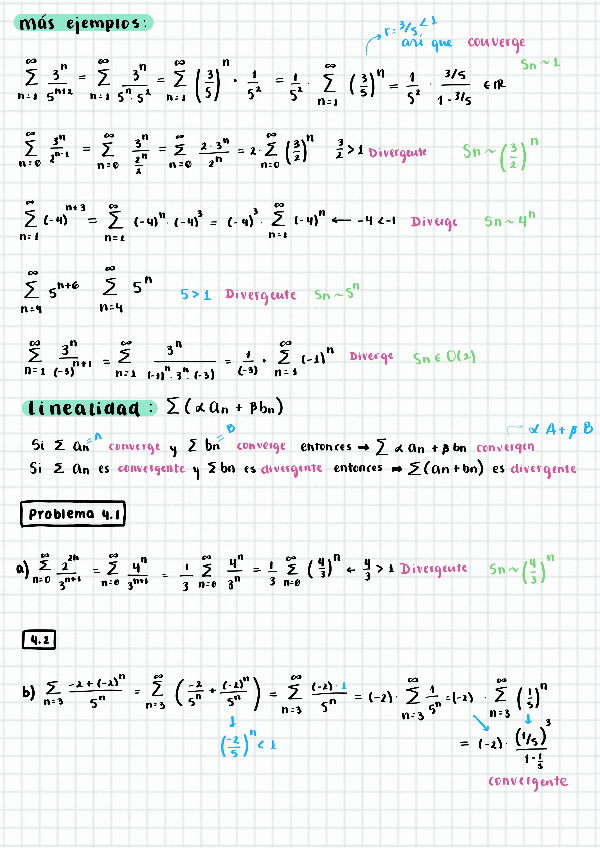 más ejemplos:
r = 3/5 < 1
así que converge
∑_{n=1}^{∞} 3^n/5^{n+2} = ∑_{n=1}^{∞} 3^n/(5^n · 5^2) = ∑_{n=1}^{∞} (3/5)^n · 1/5^2 = 1/5^2 · ∑_{n=1}^{∞} (3/5)^n = 1/5^2 · (3/5)/(1-3/5) ∈ ℝ Sn ~ 1
∑_{n=0}^{∞} 3^n/2^{n-1} = ∑_{n=0}^{∞} 3^n/(2^n/2) = ∑_{n=0}^{∞} 2·3^n/2^n = 2·∑_{n=0}^{∞} (3/2)^n 3/2 > 1 Divergente Sn ~ (3/2)^n
∑_{n=1}^{∞} (-4)^{n+3} = ∑_{n=1}^{∞} (-4)^n · (-4)^3 = (-4)^3 · ∑_{n=1}^{∞} (-4)^n ← -4 < -1 Diverge Sn ~ 4^n
∑_{n=4}^{∞} 5^{n+6} ∑_{n=4}^{∞} 5^n 5 > 1 Divergente Sn ~ 5^n
∑_{n=1}^{∞} 3^n/(-3)^{n+1} = ∑_{n=1}^{∞} 3^n/((-1)^n · 3^n · (-3)) = 1/(-3) · ∑_{n=1}^{∞} (-1)^n Diverge Sn ∈ O(1)
linealidad: ∑(αan + βbn)
αA + βB
Si ∑ an = A converge y ∑ bn = B converge entonces → ∑ αan + βbn convergen
Si ∑ an es convergente y ∑bn es divergente entonces ⇒ ∑(an + bn) es divergente
Problema 4.1
a) ∑_{n=0}^{∞} 2^{2n}/3^{n+1} = ∑_{n=0}^{∞} 4^n/3^{n+1} = 1/3 ∑_{n=0}^{∞} 4^n/3^n = 1/3 ∑_{n=0}^{∞} (4/3)^n ← 4/3 > 1 Divergente Sn ~ (4/3)^n
4.2
b) ∑_{n=3}^{∞} (-2+(-2)^n)/5^n = ∑_{n=3}^{∞} (-2/5^n + (-2)^n/5^n) = ∑_{n=3}^{∞} (-2)·1/5^n = (-2)·∑_{n=3}^{∞} 1/5^n = (-2) · ∑_{n=3}^{∞} (1/5)^n
(-2/5)^n < 1
= (-2) · (1/5)^3/(1-1/5)
convergente